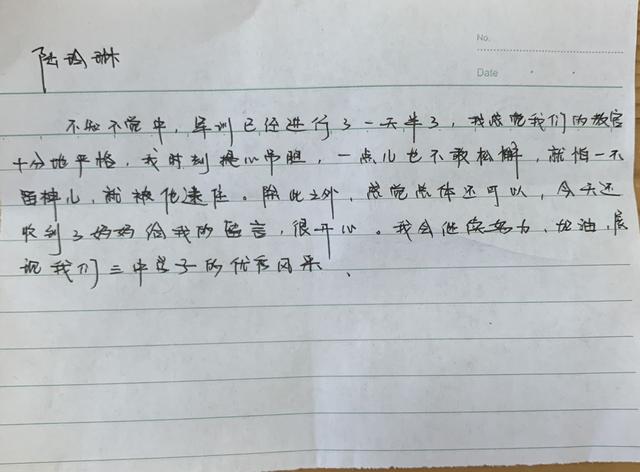 No.
Date
陆玲琳
不知不觉中，军训已经进行了一天半了，我感觉我们的教官
十分地严格，我时刻提心吊胆，一点儿也不敢松懈，就怕一不
留神儿，就被他逮住。除此之外，感觉总体还可以，今天还
收到了妈妈给我的留言，很开心。我会继续努力，加油，展
现我们三中学子的优秀风采、